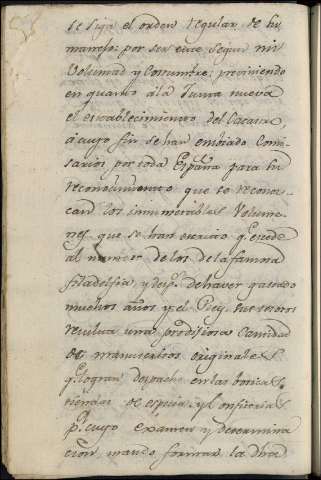 se siga el orden regular de hu
manejo: por ser este segun mi
Voluntad y Costumbre; previniendo
en quanto à la Junta nueva
el establecimiento del Catastro,
à cuyo fin se han embiado Comi-
sarios por toda España para su
reconocimiento que se reconoz-
can los innumerables Volume-
nes que se han escrito q.e excede
al numero de los de la famosa
filadelfia, y desp.s de haver gastado
muchos años, y el Rey sus tesoros
resulta una prodigiosa Cantidad
de manuscritos originales
q.e logran despacho en las boticas,
tiendas de especia, y Confiteria
p.a cuyo examen y determina
cion, mando formar la dha